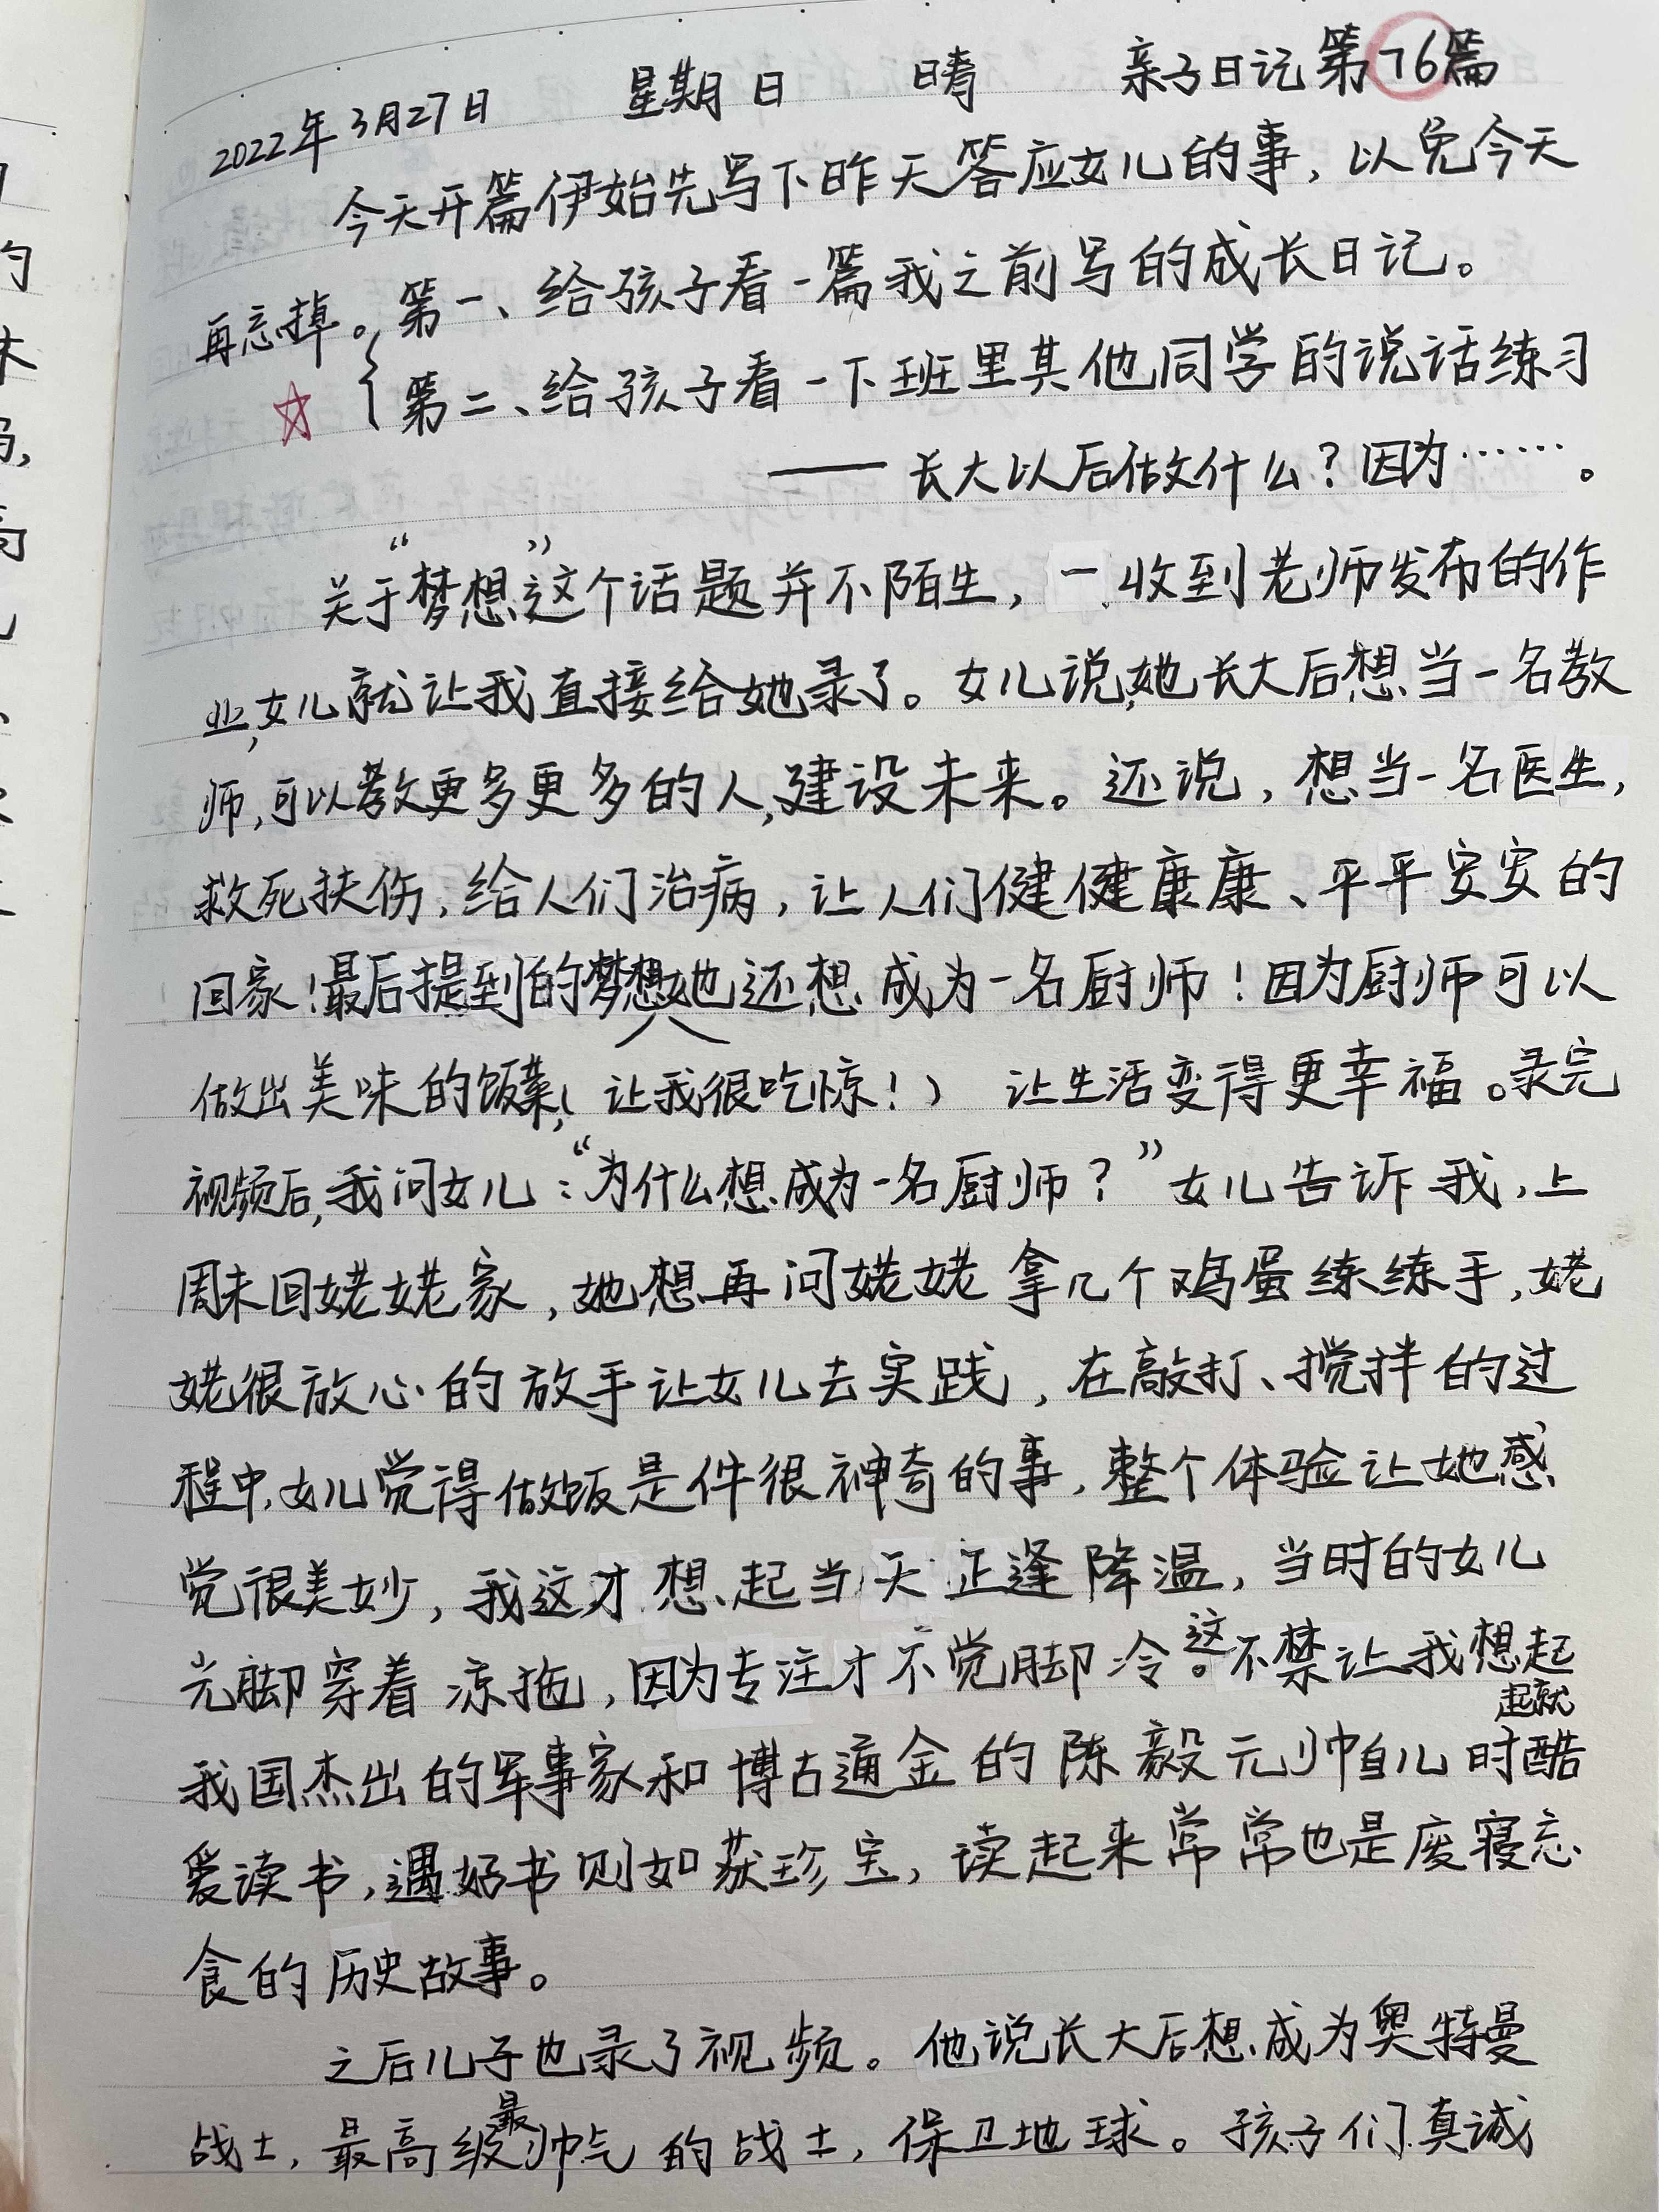 2022年3月27日 星期日 晴 亲子日记第76篇
今天开篇伊始先写下昨天答应女儿的事，以免今天
再忘掉。第一、给孩子看一篇我之前写的成长日记。
第二、给孩子看一下班里其他同学的说话练习
——长大以后做什么？因为……。
关于“梦想”这个话题并不陌生，一收到老师发布的作
业，女儿就让我直接给她录了。女儿说，她长大后想当一名教
师，可以教更多更多的人，建设未来。还说，想当一名医生，
救死扶伤，给人们治病，让人们健健康康、平平安安的
回家！最后提到的梦想她还想成为一名厨师！因为厨师可以
做出美味的饭菜，（让我很吃惊！）让生活变得更幸福。录完
视频后，我问女儿：“为什么想成为一名厨师？”女儿告诉我，上
周末回姥姥家，她想再问姥姥拿几个鸡蛋练练手，姥
姥很放心的放手让女儿去实践，在敲打、搅拌的过
程中，女儿觉得做饭是件很神奇的事，整个体验让她感
觉很美妙，我这才想起当天正逢降温，当时的女儿
光脚穿着凉拖，因为专注才不觉脚冷。这不禁让我想起
起就
我国杰出的军事家和博古通金的陈毅元帅自儿时酷
爱读书，遇好书则如获珍宝，读起来常常也是废寝忘
食的历史故事。
之后儿子也录了视频。他说长大后想成为奥特曼
战士，最高级最帅气的战士，保卫地球。孩子们真诚